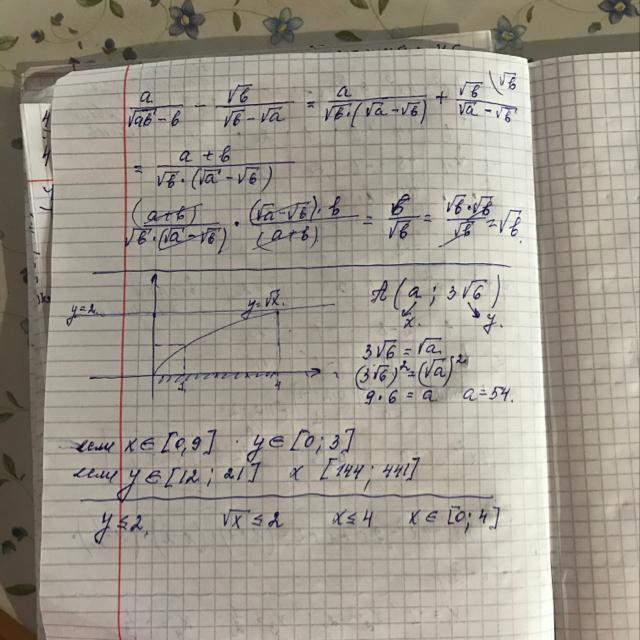 a/(√ab - b) - √b/(√b - √a) = a/(√b·(√a - √b)) + √b/(√a - √b) (√b
= (a + b)/(√b·(√a - √b))
(a+b)/(√b·(√a - √b)) · ((√a - √b)·b)/(a+b) = b/√b = (√b·√b)/√b = √b.
y=2 y=√x.
1 4
A(a; 3√6)
x. y.
3√6 = √a
(3√6)² = (√a)²
9·6 = a a=54.
если x∈[0,9] y∈[0; 3]
если y∈[12; 21] x [144; 441]
y≤2, √x≤2 x≤4 x∈[0; 4]